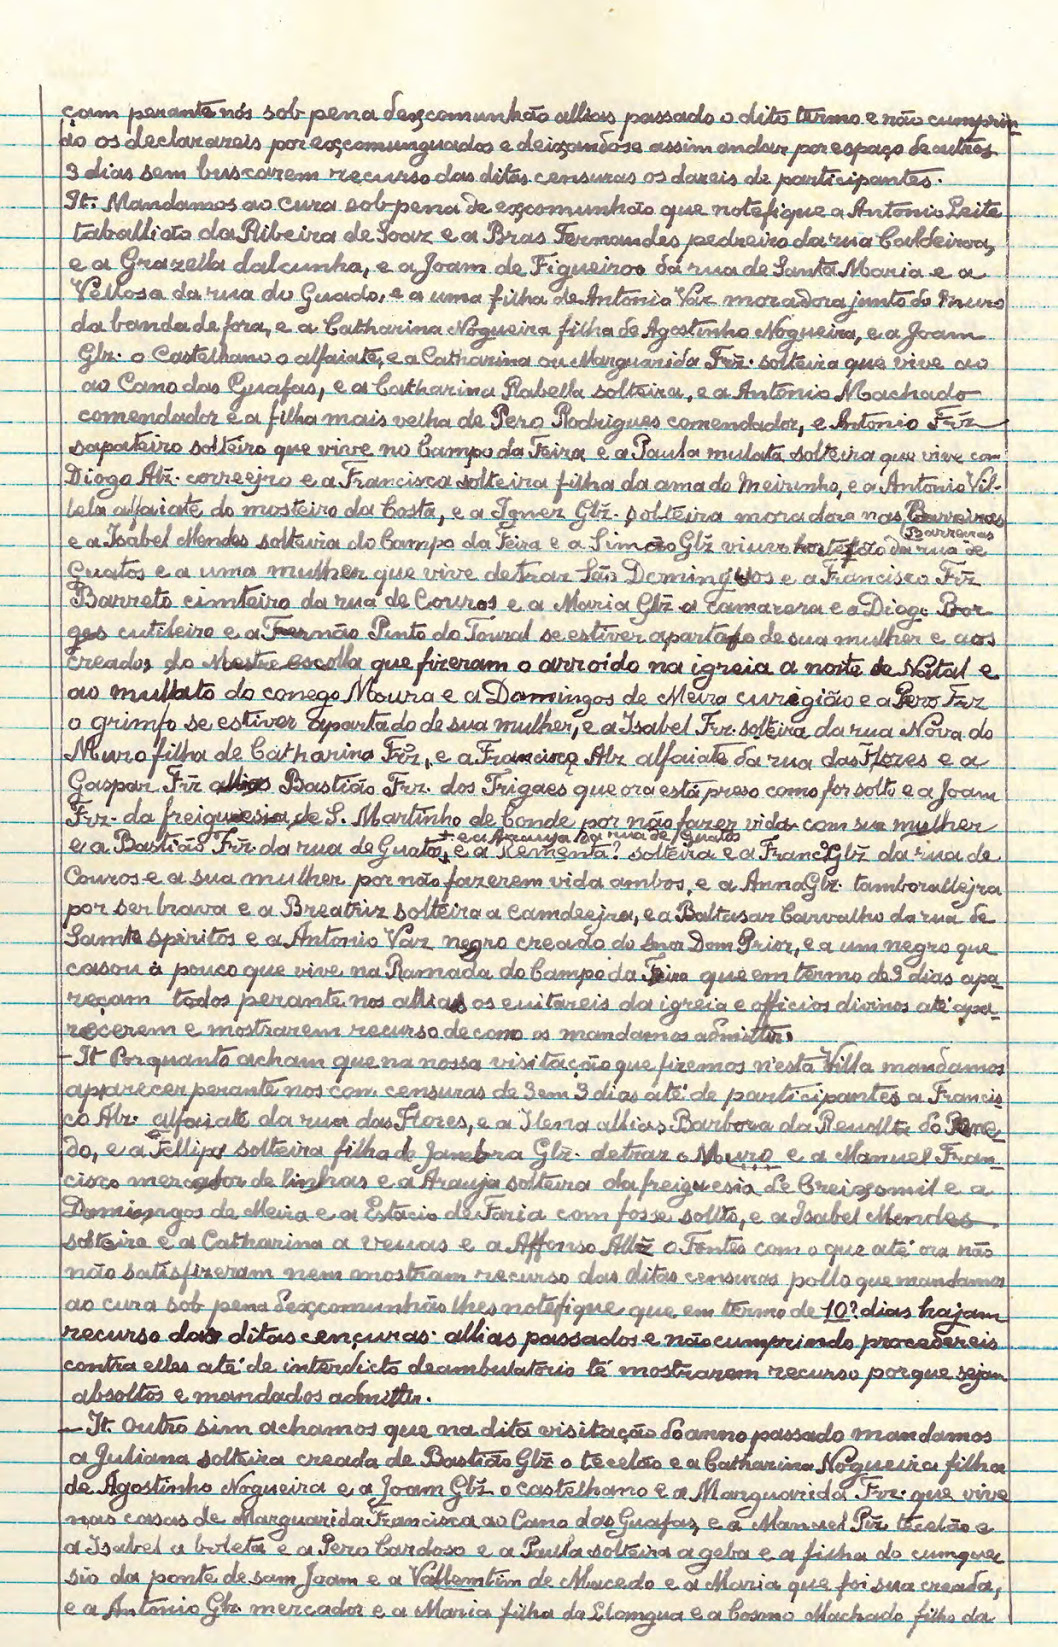 çam perante nós sob pena dexcomunhão allias passado o dito termo e não cumprin-
do os declarareis por excomunguados e deixandose assim andar por espaço de outros
3 dias sem buscarem recurso das ditas censuras os dareis de participantes.
It. Mandamos ao cura sob pena de excomunhão que notefique a Antonio Leite
taballião da Ribeira de Soaz e a Bras Fernandes pedreiro da rua Caldeiroa,
e a Grazella dalcunha, e a Joam de Figueiroo da rua de Santa Maria e a
Vellosa da rua do Guado, e a uma filha de Antonio Vaz moradora junto do muro
da banda de fora, e a Catharina Nogueira filha de Agostinho Nogueira, e a Joam
Glz. o Castelhano o alfaiate, e a Catharina ou Marguarida Frz. solteira que vive ao
ao Cano das Guafas, e a Catharina Rabella solteira, e a Antonio Machado
comendador e a filha mais velha de Pero Rodrigues comendador, e Antonio Frz
sapateiro solteiro que vive no Campo da Feira e a Paula mulata solteira que vive com
Diogo Alz. correejro e a Francisca solteira filha da ama do Meirinho, e a Antonio Vil-
lela alfaiate do mosteiro da Costa, e a Ignez Glz. solteira moradora nas Barreiras
Barreiras
e a Isabel Mendes solteira do Campo da Feira e a Simão Glz viuvo da rua de
Guatos e a uma mulher que vive detraz São Domingos e a Francisco Frz
Barreto cimteiro da rua de Couros e a Maria Glz a camarera e a Diogo Bor
ges cutileiro e a Fernão Pinto do Toural se estiver apartado de sua mulher e aos
creados do Mestre escolla que fizeram o arroido na igreia a noite de Natal e
ao mullato do conego Moura e a Domingos de Meira curigião e a Pero Frz
o grimfo se estiver apartado de sua mulher, e a Isabel Frz. solteira da rua Nova do
Muro filha de Catharina Frz., e a Francisco Alz alfaiate da rua das Flores e a
Gaspar Frz allias Bastião Frz. dos Trigaes que ora está preso como for solto e a Joam
Frz. da freiguesia de S. Martinho de Conde por não fazer vida com sua mulher
+ e a Arauja da rua de Guatos
e a Bastião Frz. da rua de Guatos, + e a Rementa? solteira e a Franc.º Glz da rua de
Couros e a sua mulher por não fazerem vida ambos, e a Anna Glz. tamborallejra
por ser brava e a Breatriz solteira a camdeejra, e a Baltasar Carvalho da rua de
Santo Spiritos e a Antonio Vaz negro creado do Snor Dom Prior, e a um negro que
casou á pouco que vive na Ramada do Campo da Feira que em termo de 9 dias apa-
reçam todos perante nos allias os euitareis da igreia e officios divinos até apa-
recerem e mostrarem recurso de como os mandamos admittir.
— It Porquanto acham que na nossa visitação que fizemos n'esta Villa mandamos
apparecer perante nos com censuras de 3 em 3 dias até de participantes a Francis-
co Alz. alfaiate da rua das Flores, e a Ilena allias Barbora da Renolta do Pene-
do, e a Fellipa solteira filha de Janebra Glz. detraz o Muro e a Manuel Fran-
cisco mercador de linhas e a Arauja solteira da freiguesia de Creixomil e a
Domingos de Meira e a Estacio de Faria com fosse solto, e a Isabel Mendes
solteira e a Catharina a veuas e a Affonso Allz o Fontes com o que até ora não
não satisfizeram nem mostram recurso das ditas censuras pollo que mandamos
ao cura sob pena dexcomunhão lhes notefique que em termo de 10? dias hajam
recurso das ditas cençuras allias passados e não cumprindo procedereis
contra elles até de interdicto deambulatorio té mostrarem recurso porque sejam
absoltos e mandados admittir.
— It. Outro sim achamos que na dita visitação do anno passado mandamos
a Juliana solteira creada de Bastião Glz o tecelão e a Catharina Nogueira filha
de Agostinho Nogueira e a Joam Glz o castelhano e a Marguarida Frz. que vive
nas casas de Marguarida Francisca ao Cano das Guafas, e a Manuel Piz tecelão e
a Isabel a boleta e a Pero Cardoso e a Paula solteira a geba e a filha do
da ponte de sam Joam e a Vallemtim de Macedo e a Maria que foi sua creada,
e a Antonio Glz mercador e a Maria filha da Elomgua e a Cosmo Machado filho da